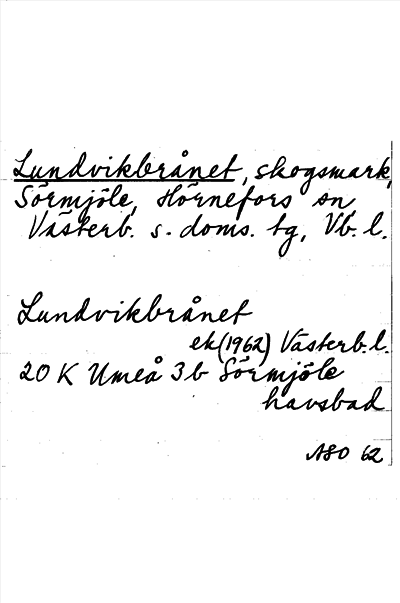 Lundvikbrånet, skogsmark,
Sörmjöle, Hörnefors sn,
Västerb. s. doms. tg, Vb. l.
Lundvikbrånet
ek (1962) Västerb. l.
20 K Umeå 3b Sörmjöle
havsbad
ASO 62